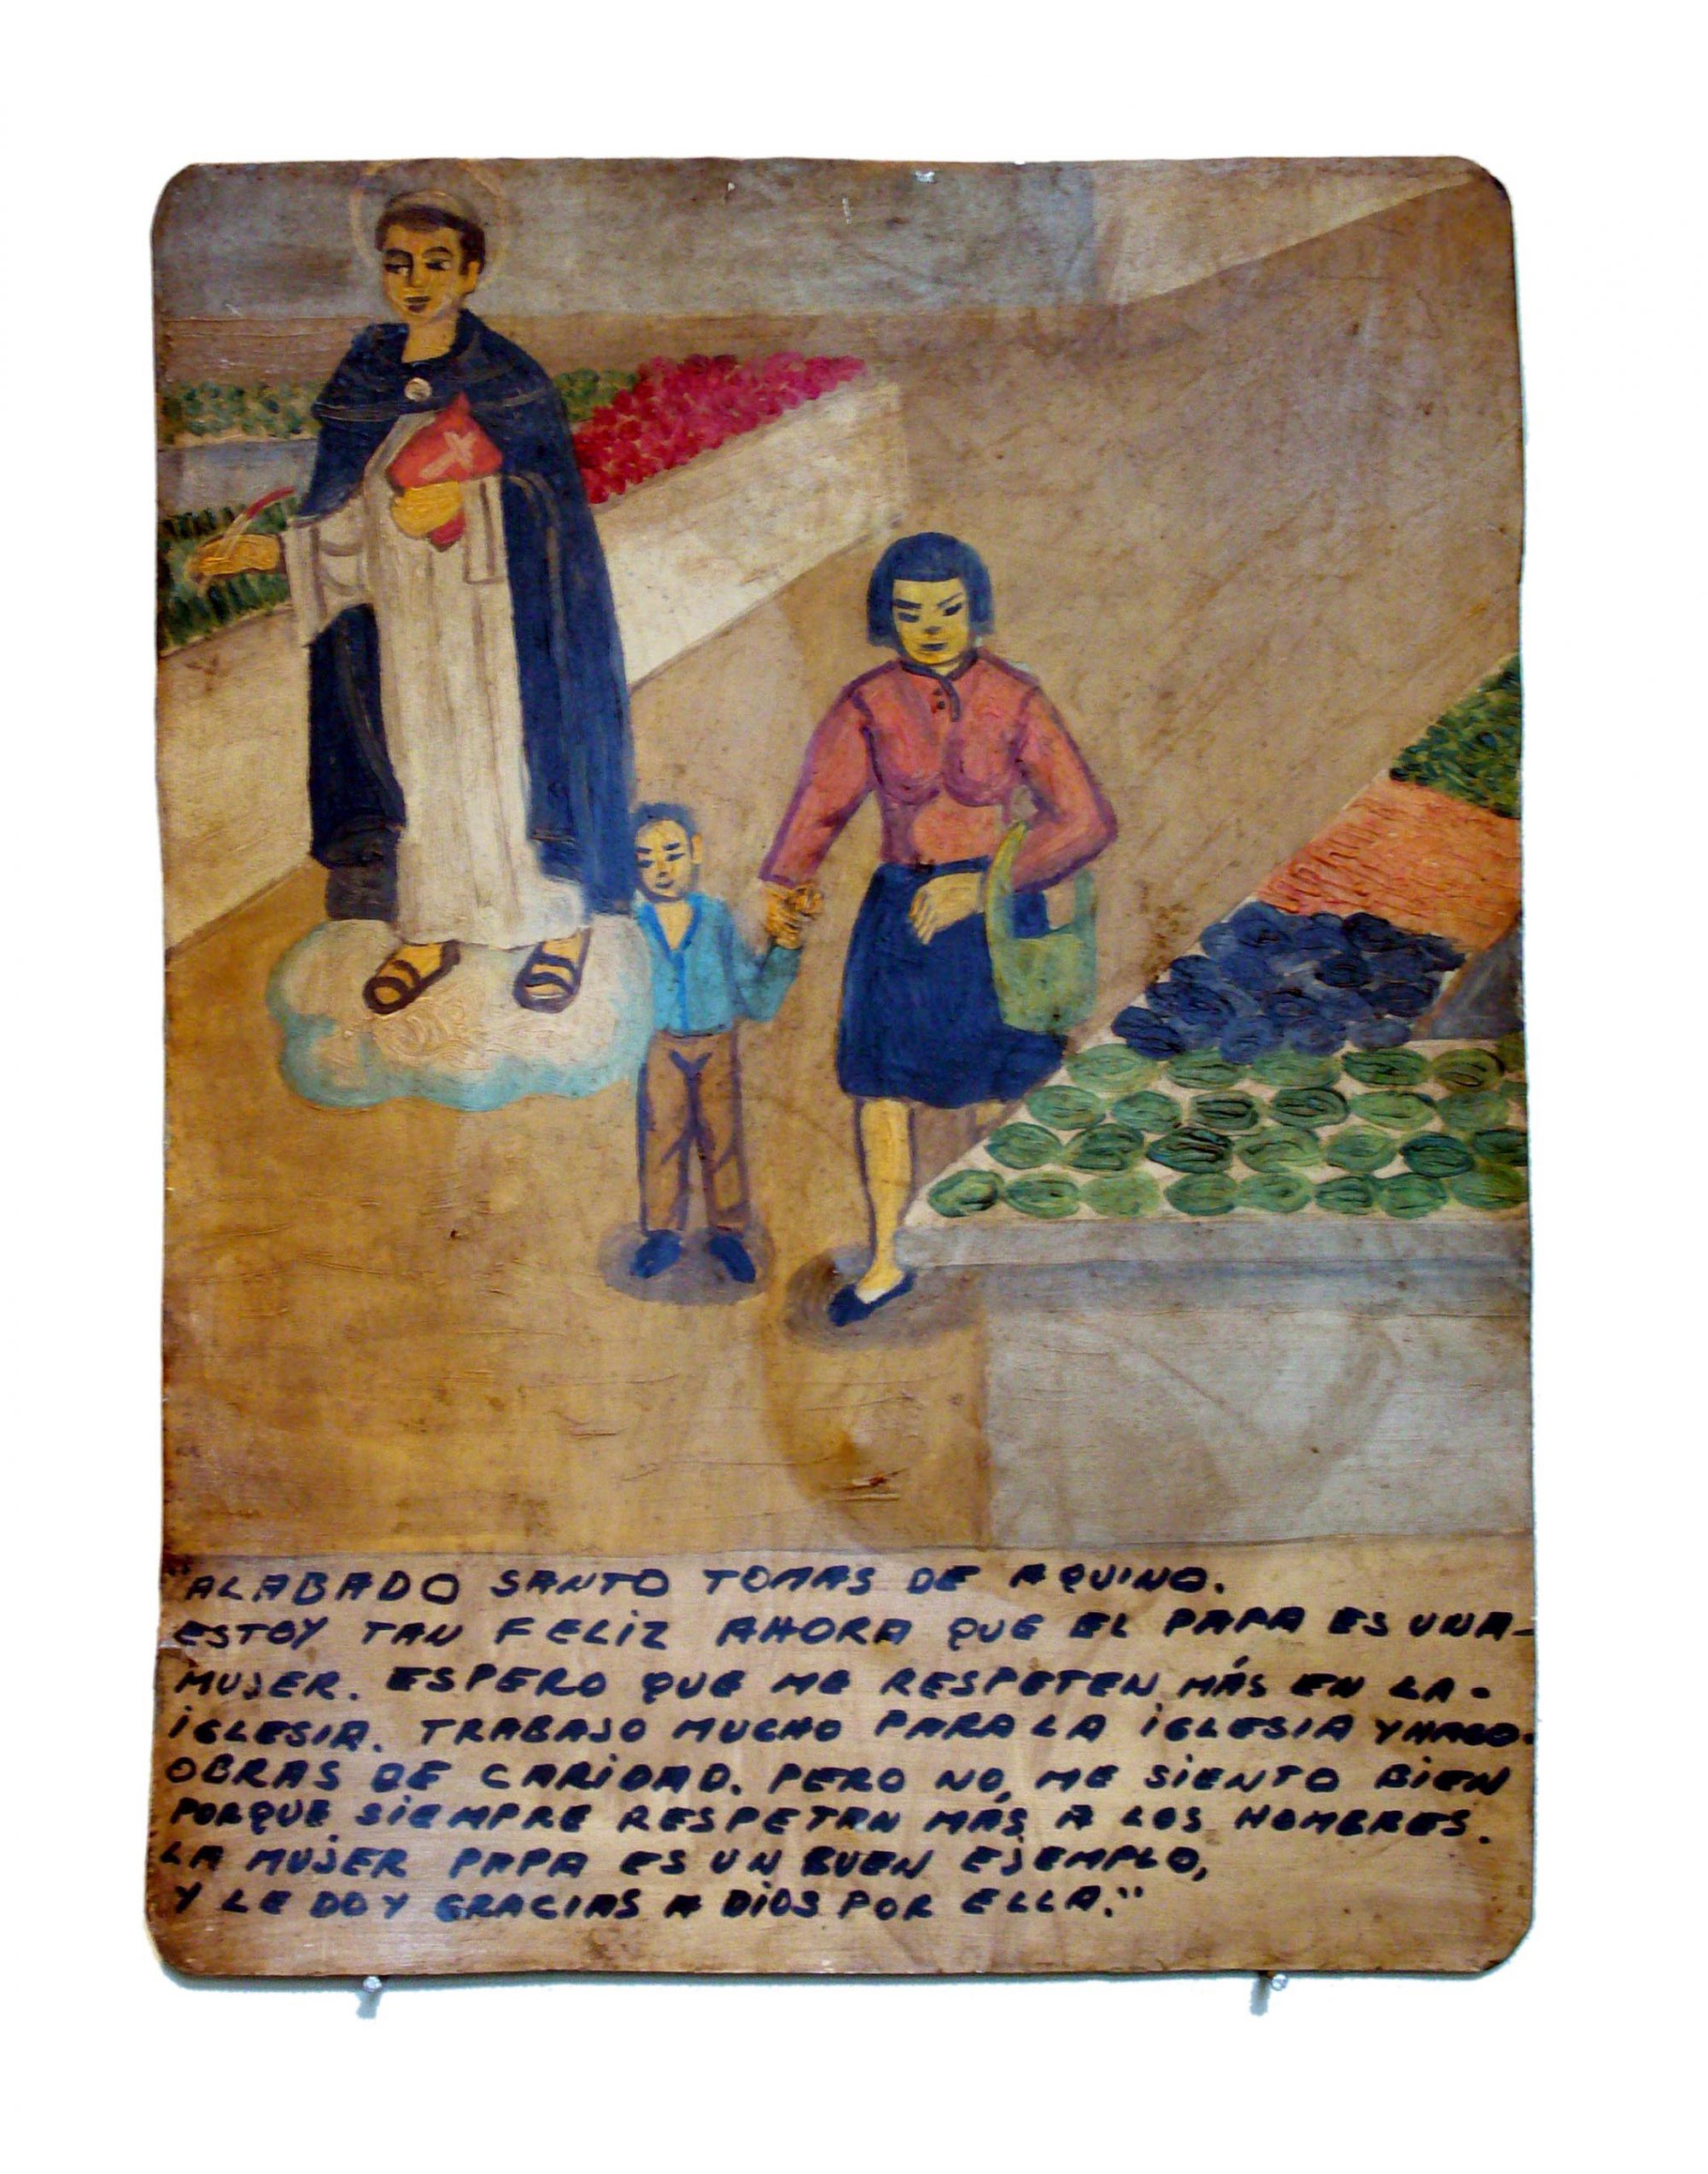 "ALABADO SANTO TOMAS DE AQUINO.
ESTOY TAN FELIZ AHORA QUE EL PAPA ES UNA-
MUJER. ESPERO QUE ME RESPETEN MÁS EN LA-
IGLESIA. TRABAJO MUCHO PARA LA IGLESIA Y HAGO-
OBRAS DE CARIDAD. PERO NO, ME SIENTO BIEN
PORQUE SIEMPRE RESPETAN MÁS A LOS HOMBRES.
LA MUJER PAPA ES UN BUEN EJEMPLO,
Y LE DOY GRACIAS A DIOS POR ELLA."